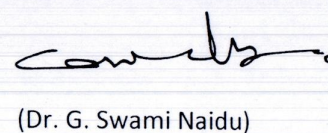 (Dr. G. Swami Naidu)